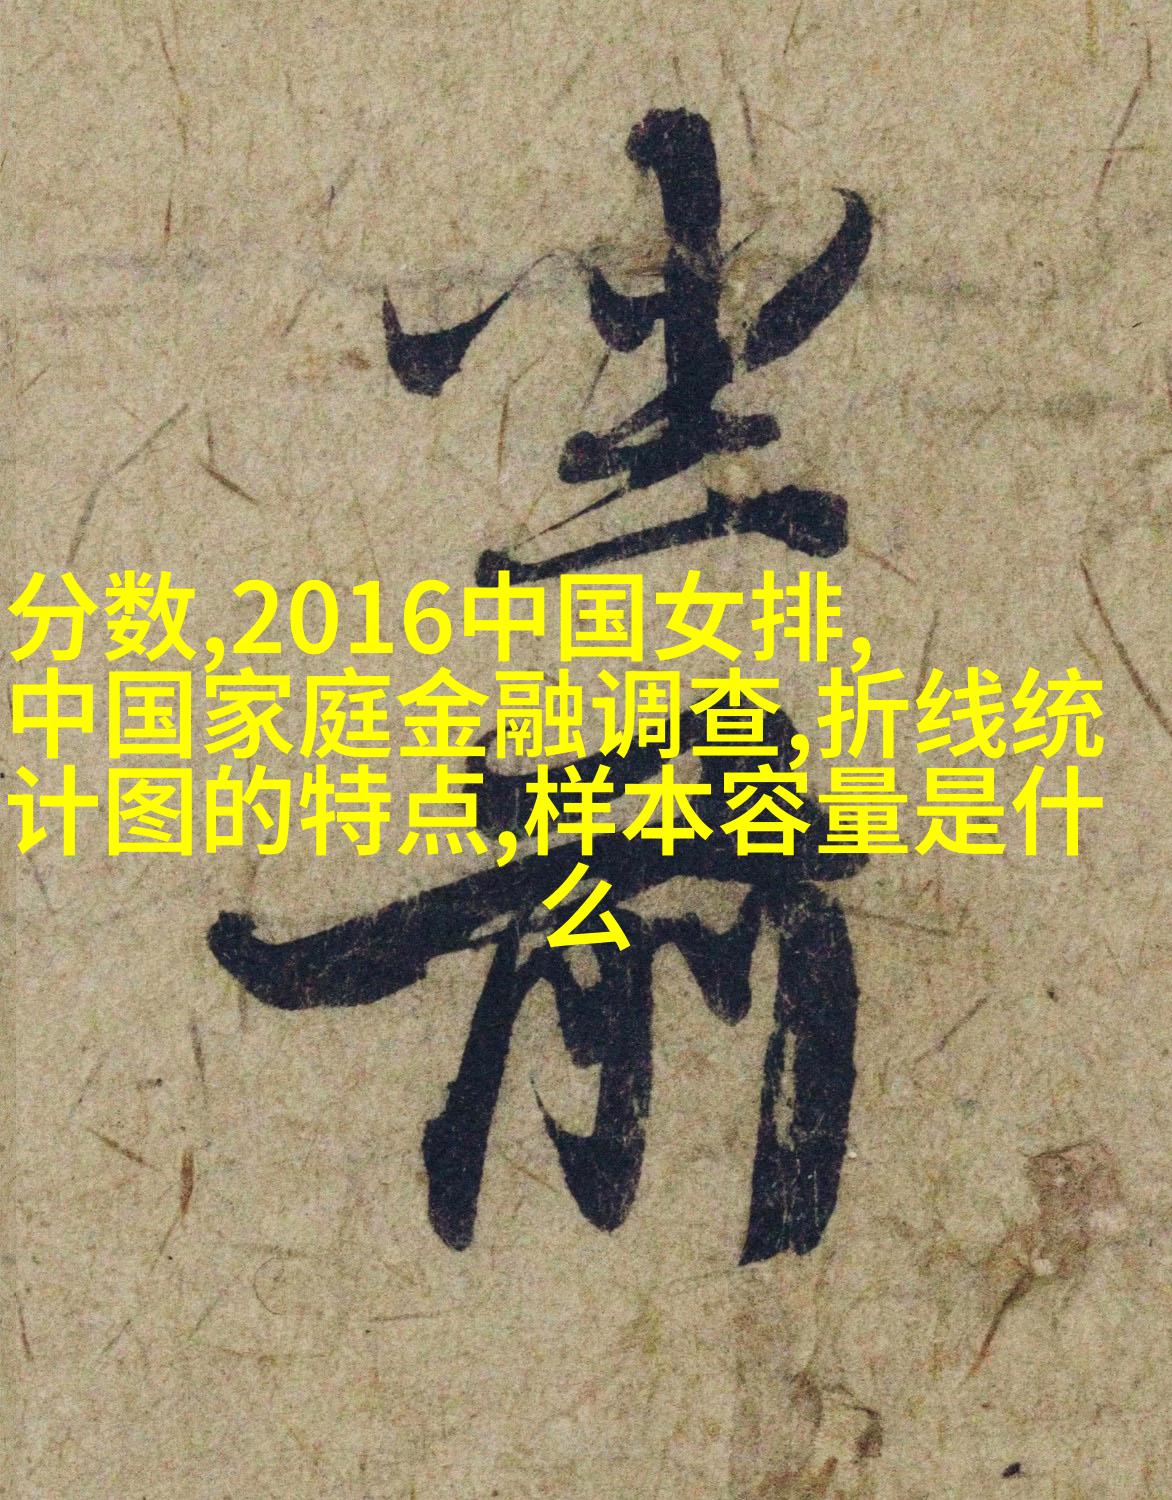 分数,2016中国女排,
中国家庭金融调查,折线统
计图的特点,样本容量是什
么